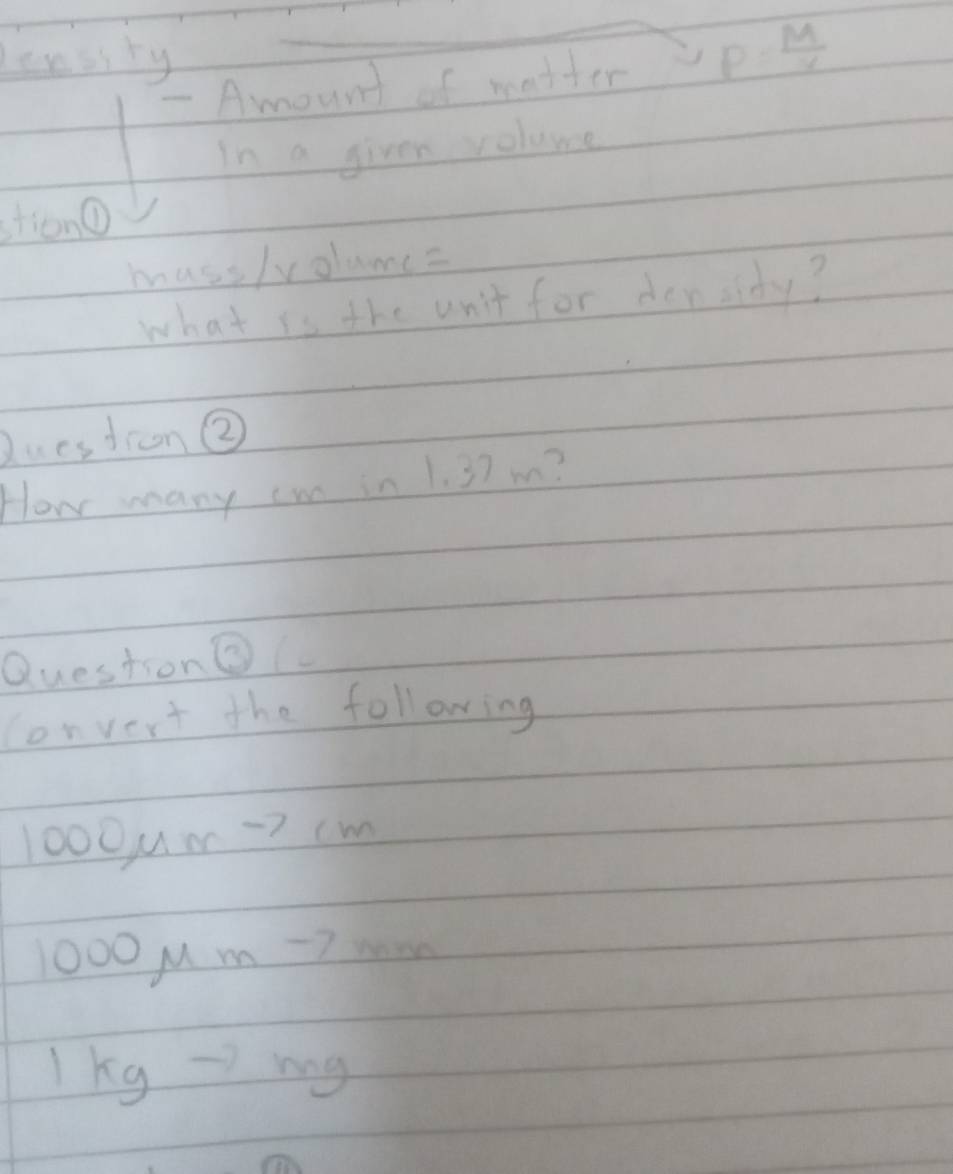 Density
- Amount of matter
in a given volume
p = M/v
stion ①
mass/volume =
what is the unit for density?
Question ②
How many cm in 1.37 m?
Question ③
Convert the following
1000 μm -> cm
1000 μm -> mm
1 kg -> mg